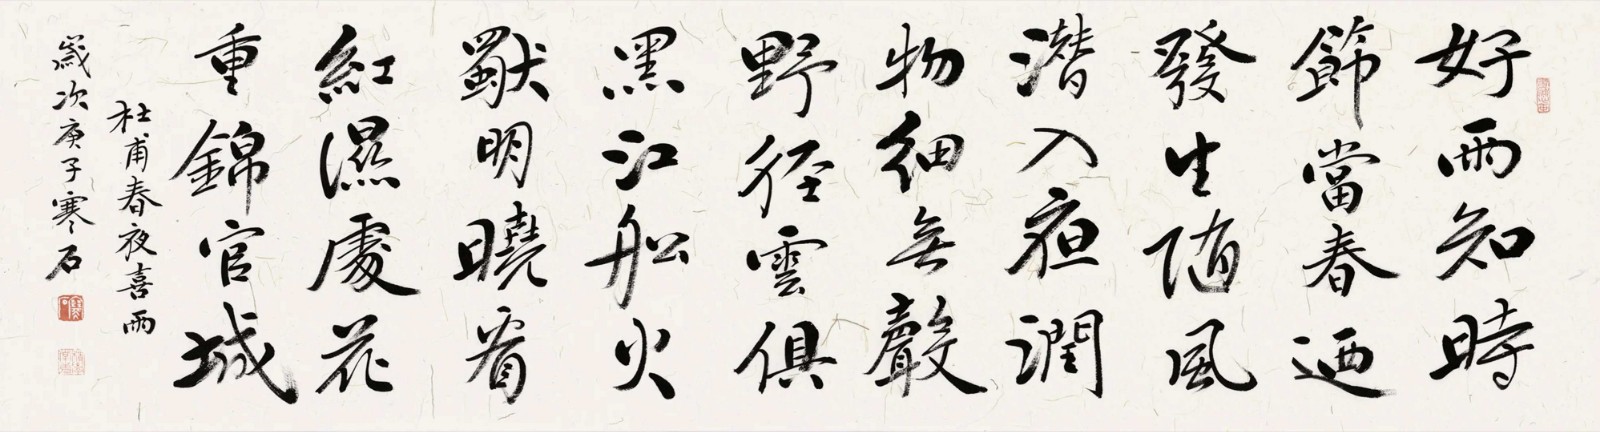 好雨知時
節當春迺
發生随風
潛入夜潤
物細無聲
野徑雲俱
黑江船火
獨明曉看
紅濕處花
重錦官城
杜甫春夜喜雨
歲次庚子寒石